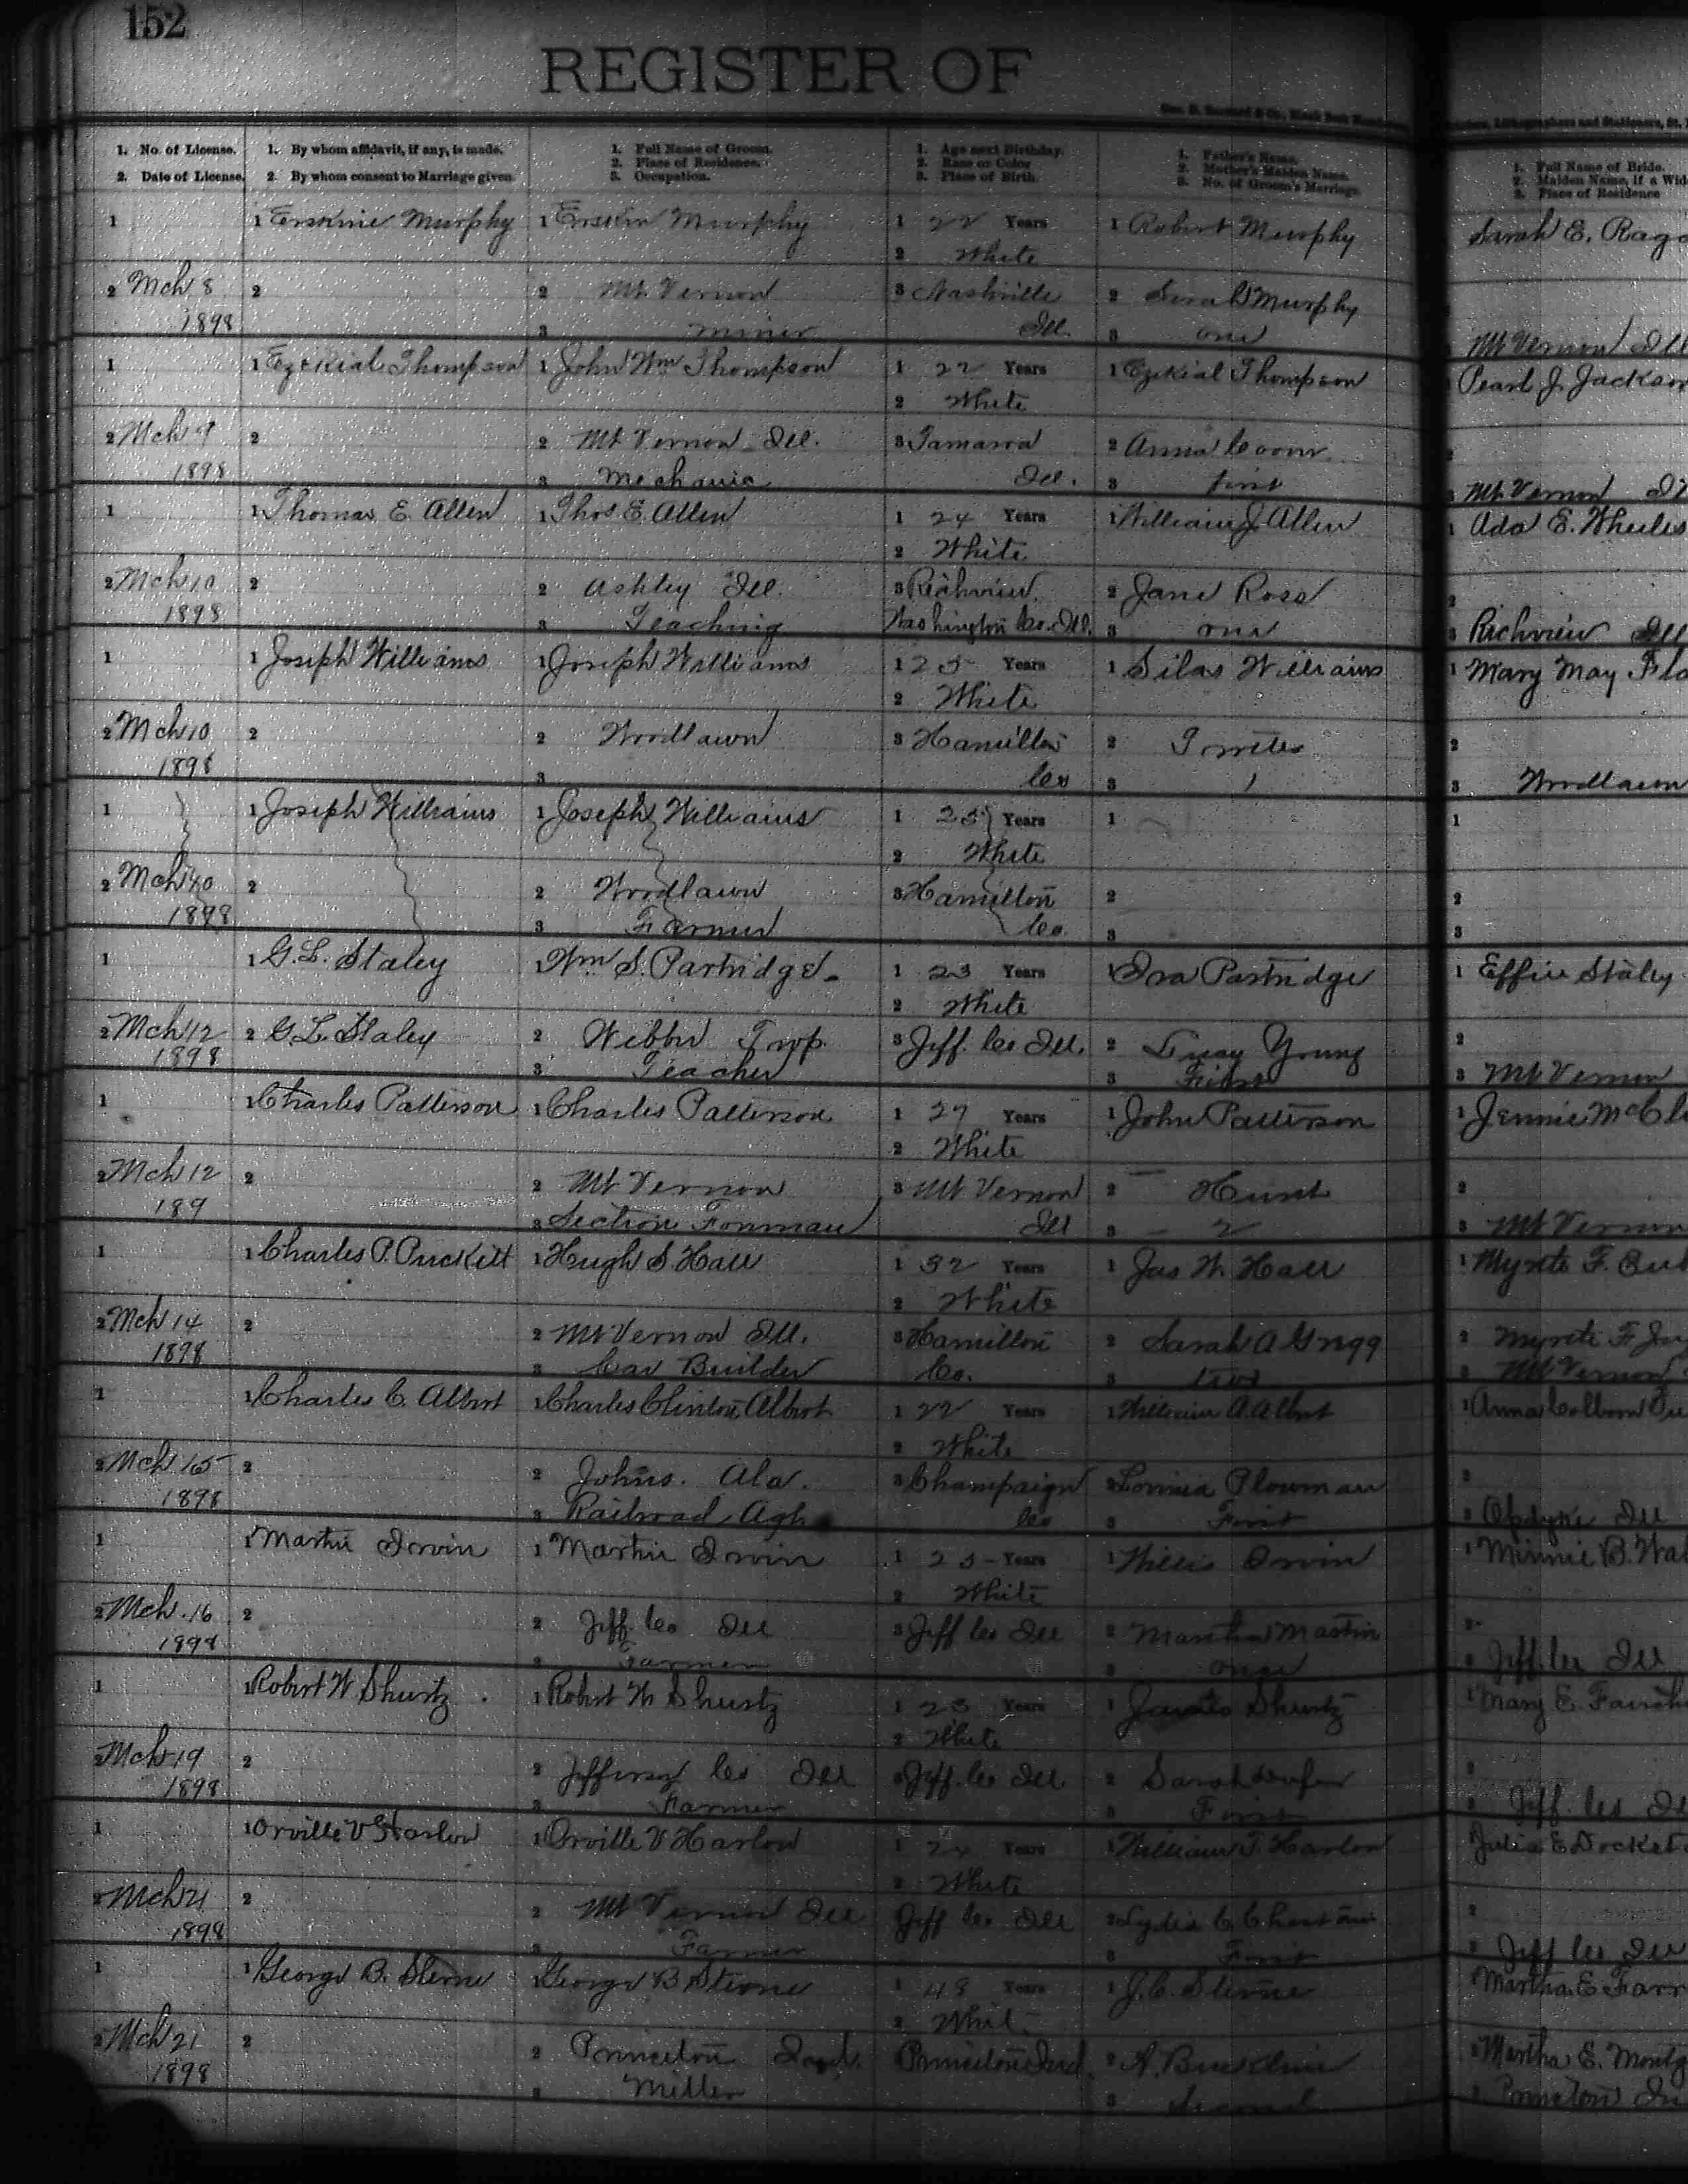 152
REGISTER OF
1. No. of License.
2. Date of License.
1. By whom affidavit, if any, is made.
2. By whom consent to Marriage given.
1. Full Name of Groom.
2. Place of Residence.
3. Occupation.
1. Age next Birthday.
2. Race or Color
3. Place of Birth.
1. Father's Name.
2. Mother's Maiden Name.
3. No. of Groom's Marriage.
1. Full Name of Bride.
2. Maiden Name, if a Wid
3. Place of Residence
1 1 Erskine Murphy 1 Murphy 1 22 Years 1 Robert Murphy Sarah E. Rag
2 White
2 Mch 8 2 2 Mt. Vernon 3 Nashville 2 Sarah Murphy
1898 3 miner Ill. 3 one Mt Vernon Ill
1 1 Ezekial Thompson 1 John Wm Thompson 1 22 Years 1 Ezekial Thompson Pearl J. Jackson
2 White
2 Mch 9 2 2 Mt Vernon Ill. 3 Tamaroa 2 Anna
1898 3 Mechanic Ill. 3 first 3 Mt Vernon
1 1 Thomas E. Allen 1 Thos E. Allen 1 24 Years 1 William J. Allen 1 Ada E. Wheeles
2 White
2 Mch 10 2 2 Ashley Ill. 3 Richview 2 Jane Ross
1898 3 Teaching Washington Co. Ill. 3 one 3 Richview Ill
1 1 Joseph Williams 1 Joseph Williams 1 25 Years 1 Silas Williams 1 Mary May Flo
2 White
2 Mch 10 2 2 Woodlawn 3 Hamilton 2 2
1898 3 Co 3 1 3 Woodlawn
1 1 Joseph Williams 1 Joseph Williams 1 25 Years 1 1
2 White
2 Mch 10 2 2 Woodlawn 3 Hamilton 2 2
1898 3 Farmer Co. 3 3
1 1 G. L. Staley 1 Wm S. Partridge 1 23 Years 1 Ira Partridge 1 Effie Staley
2 White
2 Mch 12 2 G. L. Staley 2 Webber 3 Jeff. Co Ill. 2 Young 2
1898 3 Teacher 3 First 3 Mt Vernon
1 1 Charles Patterson 1 Charles Patterson 1 27 Years 1 John Patterson 1 Jennie McCl
2 White
2 Mch 12 2 2 Mt Vernon 3 Mt Vernon 2 Hunt 2
189 3 Section Forman Ill 3 2 3 Mt Vernon
1 1 Charles P. Puckett 1 Hugh S. Hall 1 32 Years 1 Jas W. Hall 1 Myrtle F.
2 White
2 Mch 14 2 2 Mt Vernon Ill. 3 Hamilton 2 Sarah A Grigg 2 Myrtle F.
1898 3 Car Builder Co. 3 two 3 Mt Vernon
1 1 Charles C. Albert 1 Charles Clinton Albert 1 22 Years 1 William A. Albert 1 Anna
2 White
2 Mch 15 2 2 Johns. Ala. 3 Champaign 2 Plowman 2
1898 3 Railroad Agt. Co 3 First 3 Opdyke Ill
1 1 Martin Irvin 1 Martin Irvin 1 25 Years 1 Willis Irvin 1 Minnie B. Wal
2 White
2 Mch. 16 2 2 Jeff. Co Ill 3 Jeff Co Ill 2 Martha Martin 2
1898 3 Farmer 3 once 3 Jeff. Co Ill
1 1 Robert W Shurtz 1 Robert W. Shurtz 1 23 Years 1 James Shurtz 1 Mary E. Fairch
2 White
2 Mch 19 2 2 Jefferson Co Ill 3 Jeff. Co Ill. 2 Sarah 2
1898 3 Farmer 3 First 3 Jeff. Co Ill
1 1 Orville V Harlow 1 Orville V Harlow 1 24 Years 1 William T. Harlow Julia E.
2 White
2 Mch 21 2 2 Mt Vernon Ill Jeff Co Ill 2 Lydia C. 2
1898 3 Farmer 3 First 3 Jeff Co Ill
1 1 George B. Sterne 1 George B Sterne 1 48 Years 1 J. C. Sterne Martha E Farr
2 White
2 Mch 21 2 2 Princeton Ind. Princeton Ind. 2 A. 2 Martha E. Montg
1898 3 Miller 3 Second Princeton In